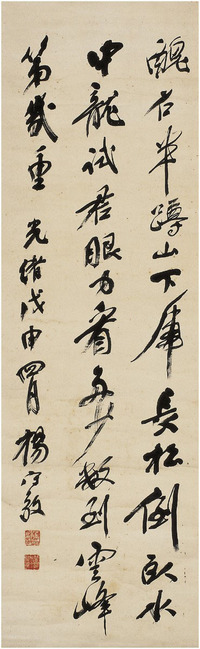 醜石半蹲山下虎長松倒臥水
中龍試君眼力看多少數到雲峰
第幾重 光緒戊申四月 楊守敬